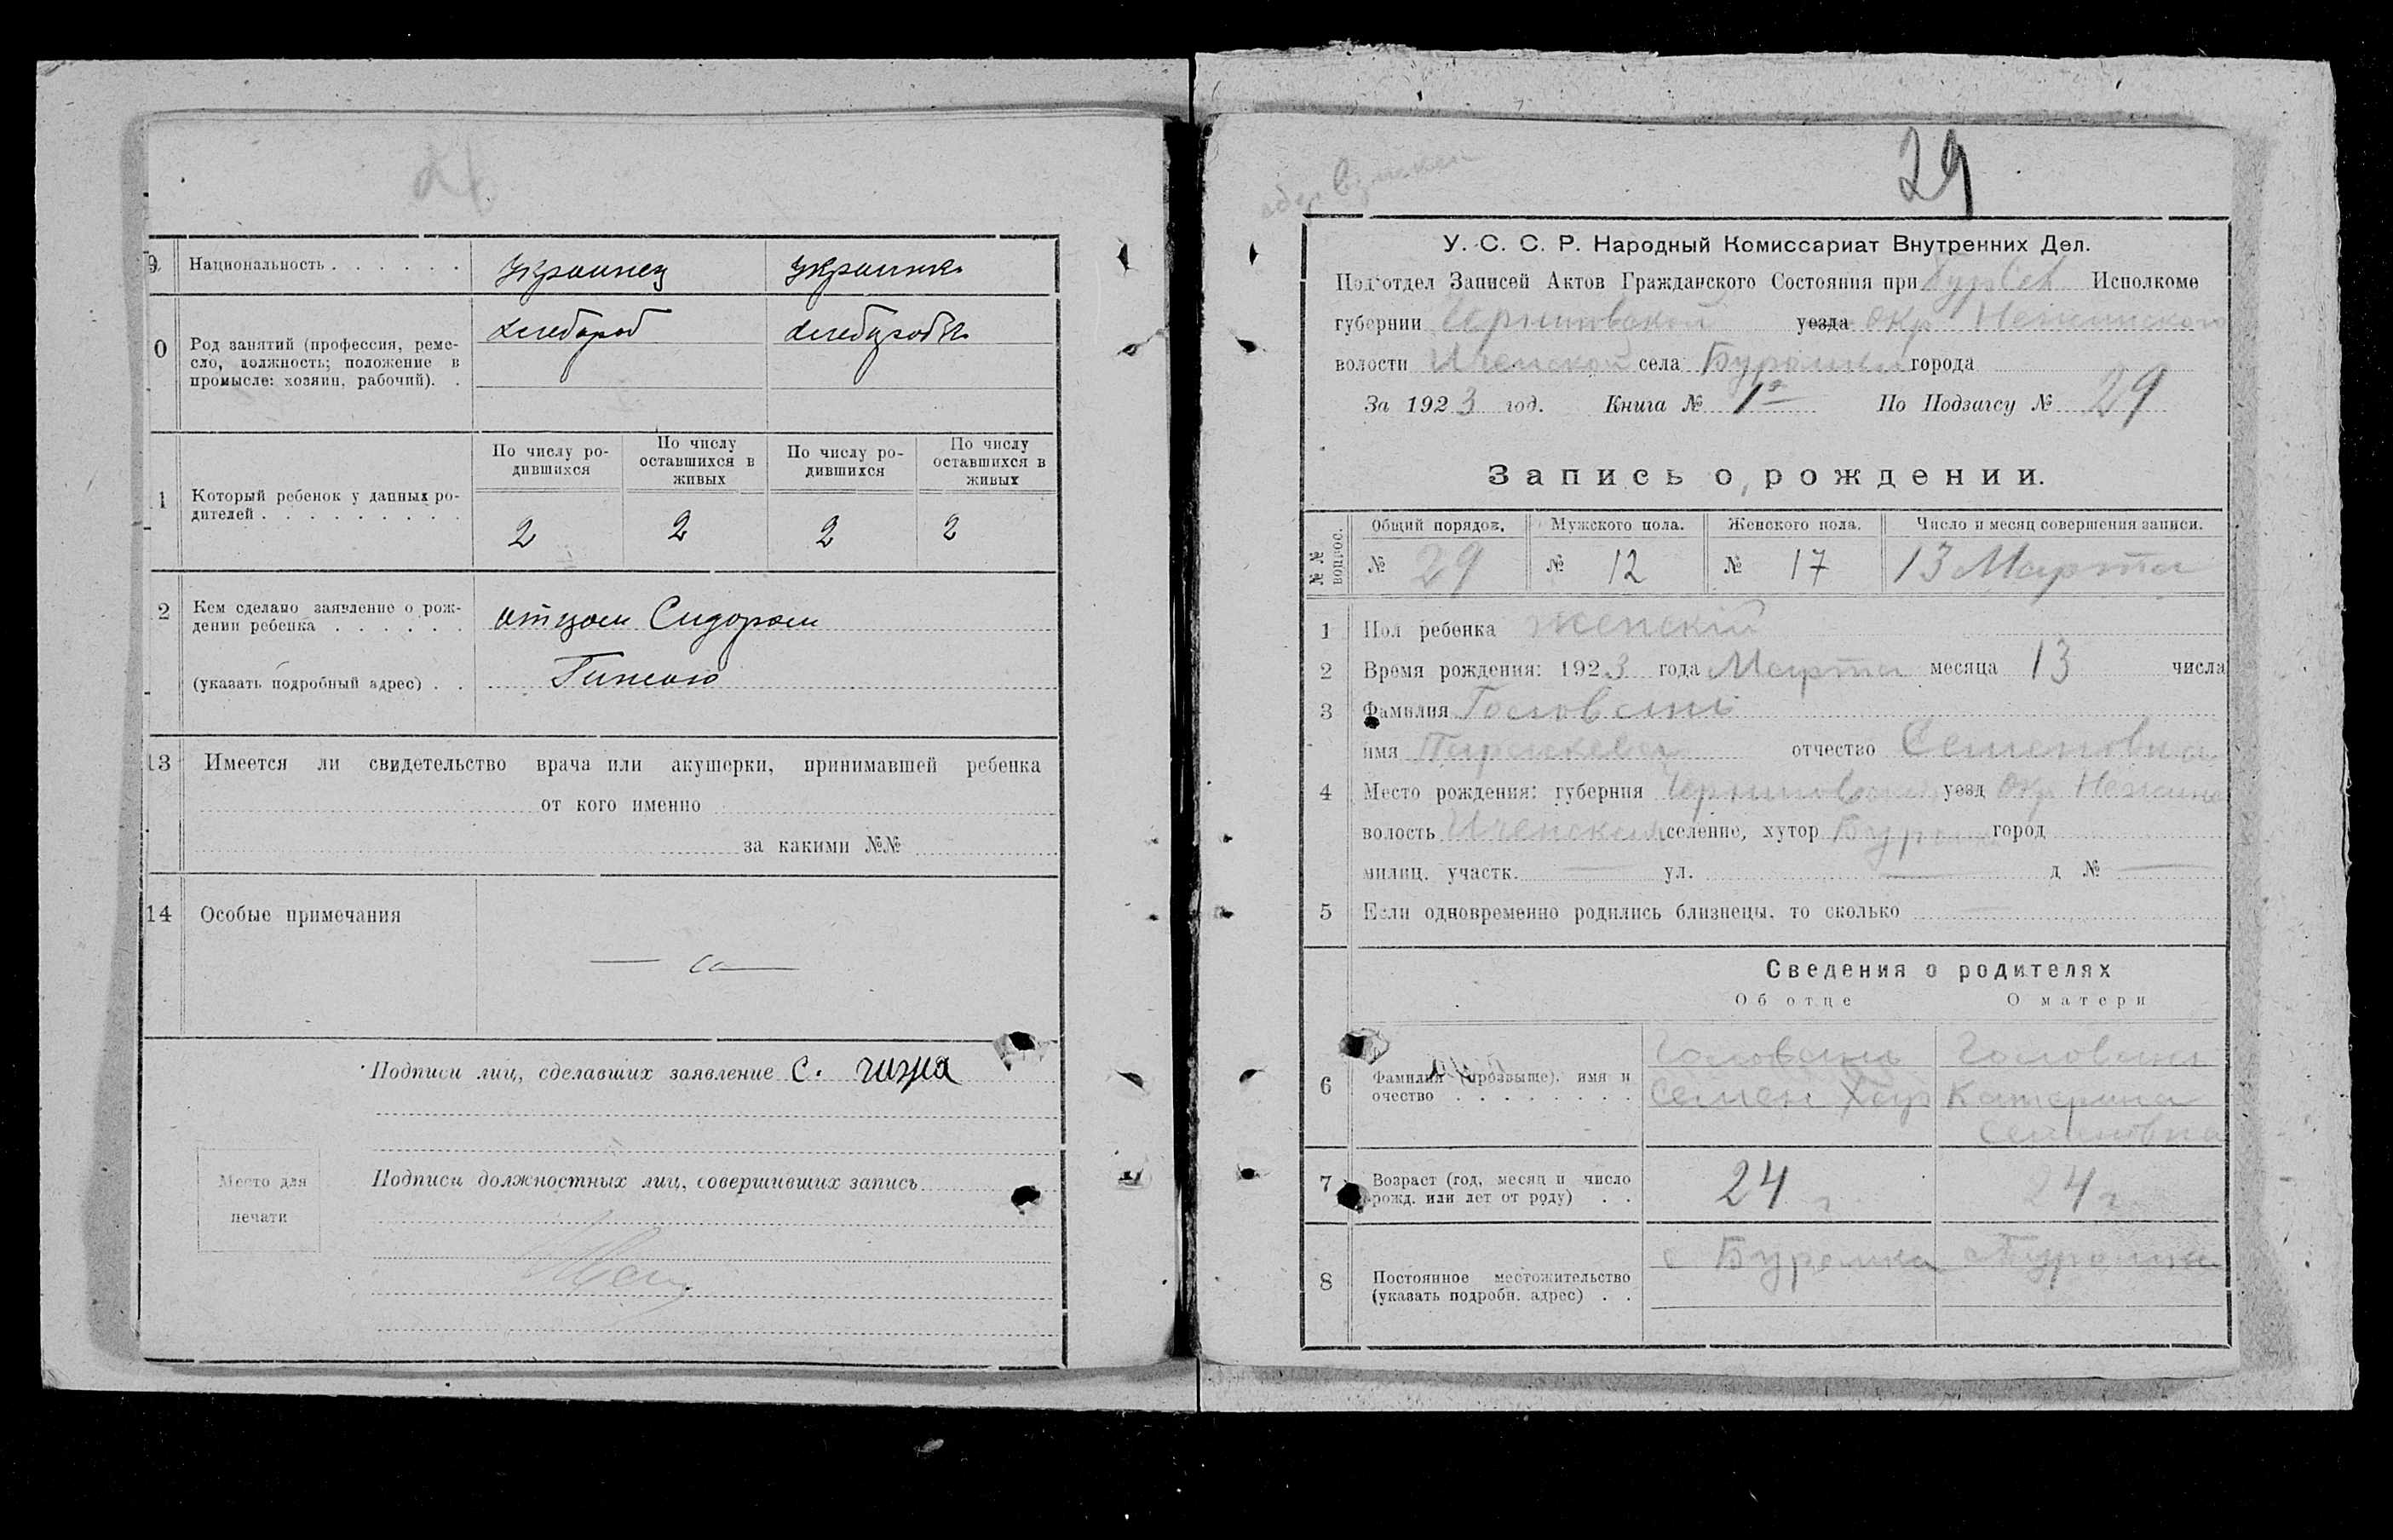 9 Национальность . . . . . . Украинец Украинка
0 Род занятий (профессия, реме-
сло, должность; положение в
промысле: хозяин, рабочий). .
хлебороб хлебороб
1 Который ребенок у данных ро-
дителей . . . . . . . . .
По числу ро-
дившихся
По числу
оставшихся в
живых
По числу ро-
дившихся
По числу
оставшихся в
живых
2 2 2 2
2 Кем сделано заявление о рож-
дении ребенка . . . . . . отцом Сидором
(указать подробный адрес) . . Гижою
13 Имеется ли свидетельство врача или акушерки, принимавшей ребенка
от кого именно
за какими №№
14 Особые примечания
Подписи лиц, сделавших заявление С. гижа
Место для
печати
Подписи должностных лиц, совершивших запись
29
У. С. С. Р. Народный Комиссариат Внутренних Дел.
Подотдел Записей Актов Гражданского Состояния при Исполкоме
губернии Черниговской уезда окр Нежинского
волости Иченской села Буромки города
За 1923 год. Книга № 1я По Подзагсу № 29
Запись о рождении.
№№ вопрос.
Общий порядов. Мужского пола. Женского пола. Число и месяц совершения записи.
№ 29 № 12 № 17 13 Марта
1 Пол ребенка женский
2 Время рождения: 1923 года Марта месяца 13 числа
3 Фамилия Головань
имя Параскева отчество Семеновна
4 Место рождения: губерния Черниговская уезд окр Нежинс
волость Иченская селение, хутор Буромка город
милиц. участк. — ул. — д № —
5 Если одновременно родились близнецы, то сколько —
Сведения о родителях
Об отце О матери
6 Фамилия (прозвище), имя и
очество . . . . . . . .
Головань Головань
Семен Катерина
Семеновна
7 Возраст (год, месяц и число
рожд. или лет от роду) . .
24 г 24 г
8 Постоянное местожительство
(указать подробн. адрес) . .
с Буромка с Буромка